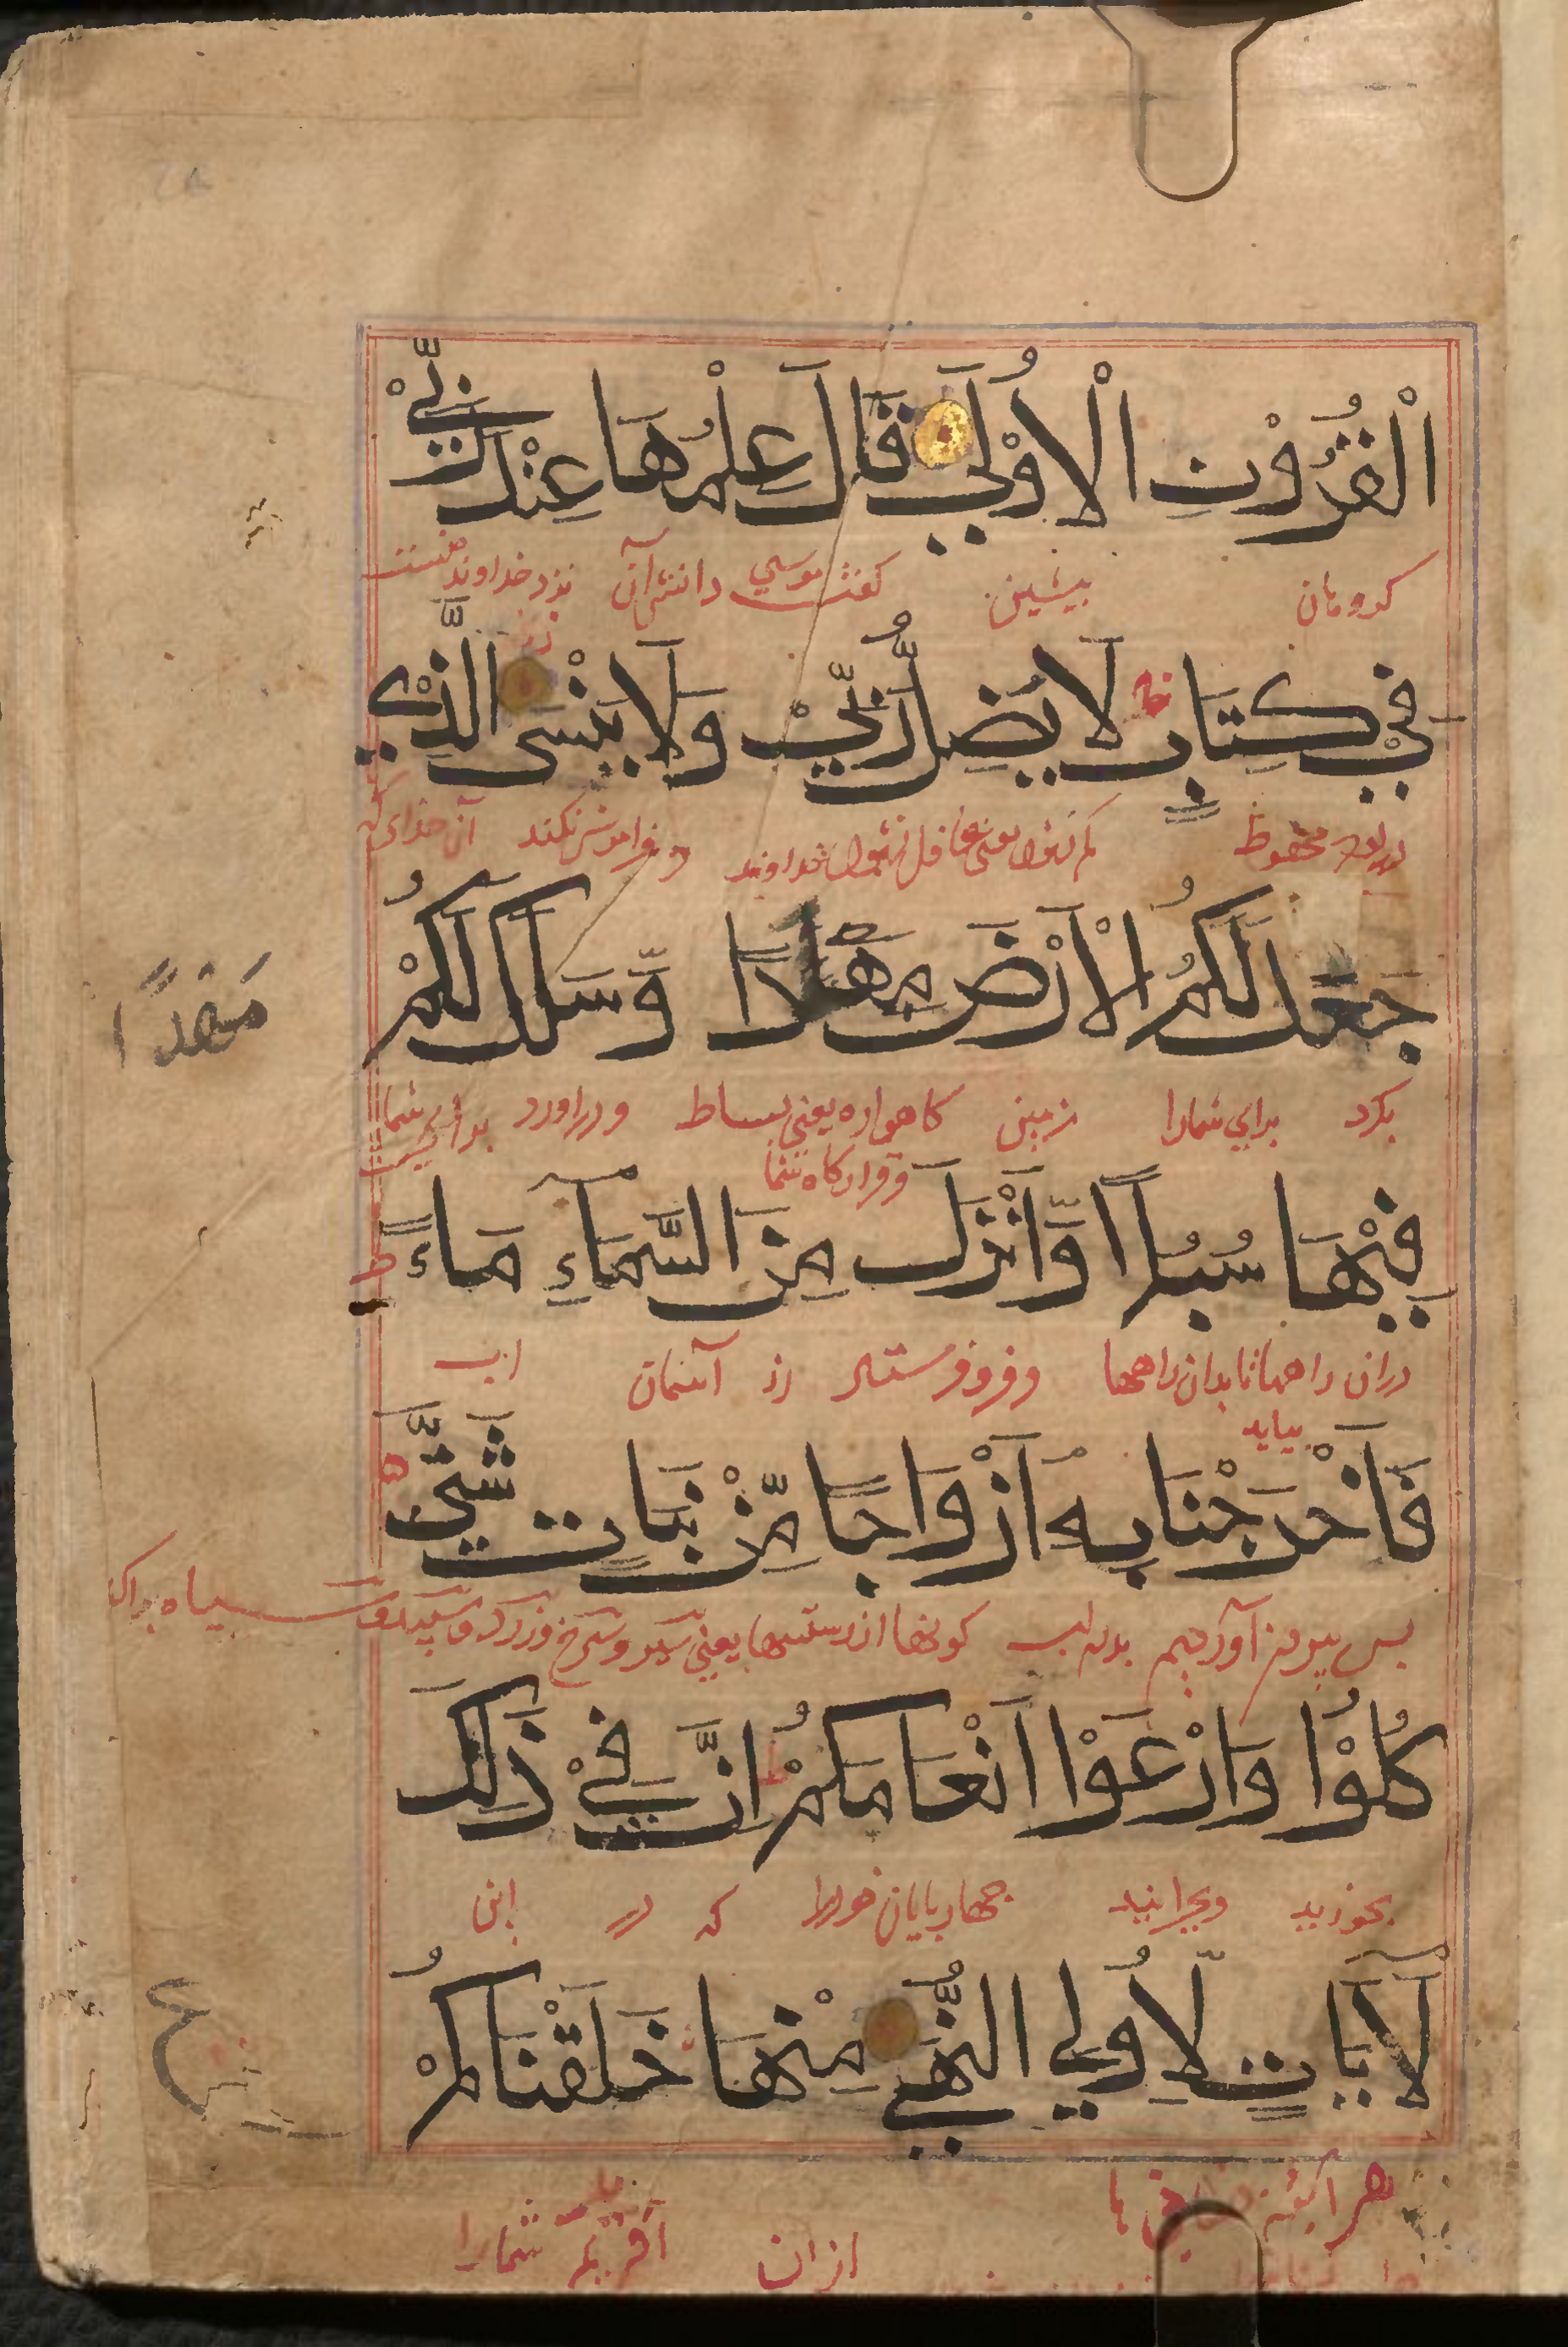 الْقُرُوْنِ الْاُوْلَي قَالَ عِلْمُهَا عِنْدَ رَبِّيْ
كروهان پیشین گفت موسي دانش آن نزد خداوند منست
فِيْ كِتَابٍ لَا يَضِلُّ رَبِّيْ وَلَا يَنْسَى الَّذِيْ
در لوح محفوظ كم نشود یعنی غافل نشود خداوند و فراموش نكند آن خدای كه
جَعَلَ لَكُمُ الْاَرْضَ مَهْدًا وَّسَلَكَ لَكُمْ
مَهْدًا
بكرد برای شمارا زمین كاهواره یعنی بساط و دراورد برای شما
وقراركاه شما
فِيْهَا سُبُلًا وَّاَنْزَلَ مِنَ السَّمَآءِ مَاءً ط
دران راهها تا بدان راهها وفرو فرستاد از آسمان اب
بیاید
فَاَخْرَجْنَا بِهٖٓ اَزْوَاجًا مِّنْ نَبَاتٍ شَتّٰي
پس بیرون آوردیم بدان اب كونها از رستنیها یعنی سبز و سرخ و زرد و سپید و سیاه
كُلُوْا وَارْعَوْا اَنْعَامَكُمْ ط اِنَّ فِيْ ذَلِكَ
بخورید وبچرانید چهارپایان خودرا كه در این
لَآيَاتٍ لِّاُولِي النُّهَي مِنْهَا خَلَقْنَاكُمْ
ع
هرآئینه
ازان آفریدیم شمارا